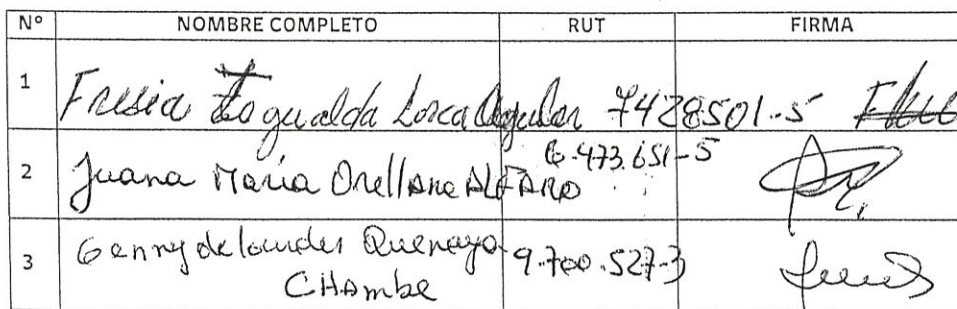 Nº NOMBRE COMPLETO RUT FIRMA
1 Fresia Isgualda Lorca Aguilar 7428501-5
2 Juana María Orellana ALFARO 6.473.651-5
3 Genny de lourdes Quenaya 9.700.527-3
CHAmbe